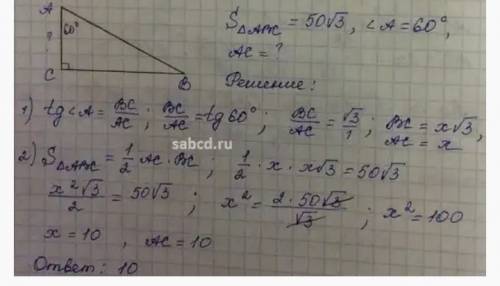 A
60°
?
C
B
S△ABC = 50√3, ∠A = 60°,
AC = ?
Решение:
1) tg∠A = BC/AC; BC/AC = tg 60°; BC/AC = √3/1; BC = x√3, AC = x
sabcd.ru
2) S△ABC = 1/2 AC · BC; 1/2 · x · x√3 = 50√3
x²√3/2 = 50√3; x² = 2·50√3/√3; x² = 100
x = 10, AC = 10
Ответ: 10